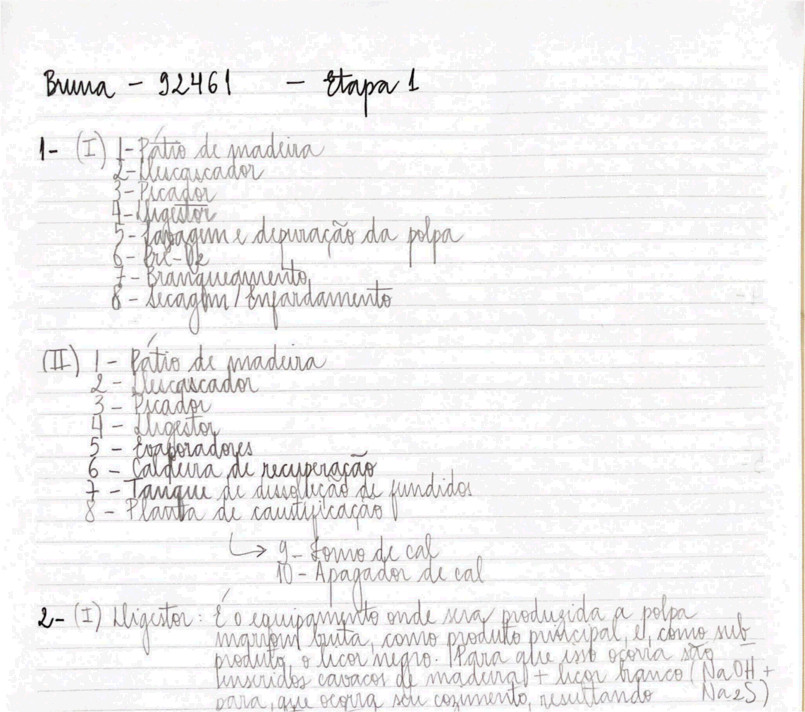 Bruna - 92461 - Etapa 1
1- (I) 1- Pátio de madeira
2- Descascador
3- Picador
4- Digestor
5- Lavagem e depuração da polpa
6- Pré-O2
7- Branqueamento
8- Secagem / Enfardamento
(II) 1- Pátio de madeira
2- Descascador
3- Picador
4- Digestor
5- Evaporadores
6- Caldeira de recuperação
7- Tanque de dissolução de fundidos
8- Planta de caustificação
→ 9- Forno de cal
10- Apagador de cal
2- (I) Digestor: É o equipamento onde será produzida a polpa
marrom bruta, como produto principal, e, como sub
produto, o licor negro. Para que isso ocorra são
inseridos cavacos de madeira + licor branco (NaOH +
para, que ocorra seu cozimento, resultando Na2S)